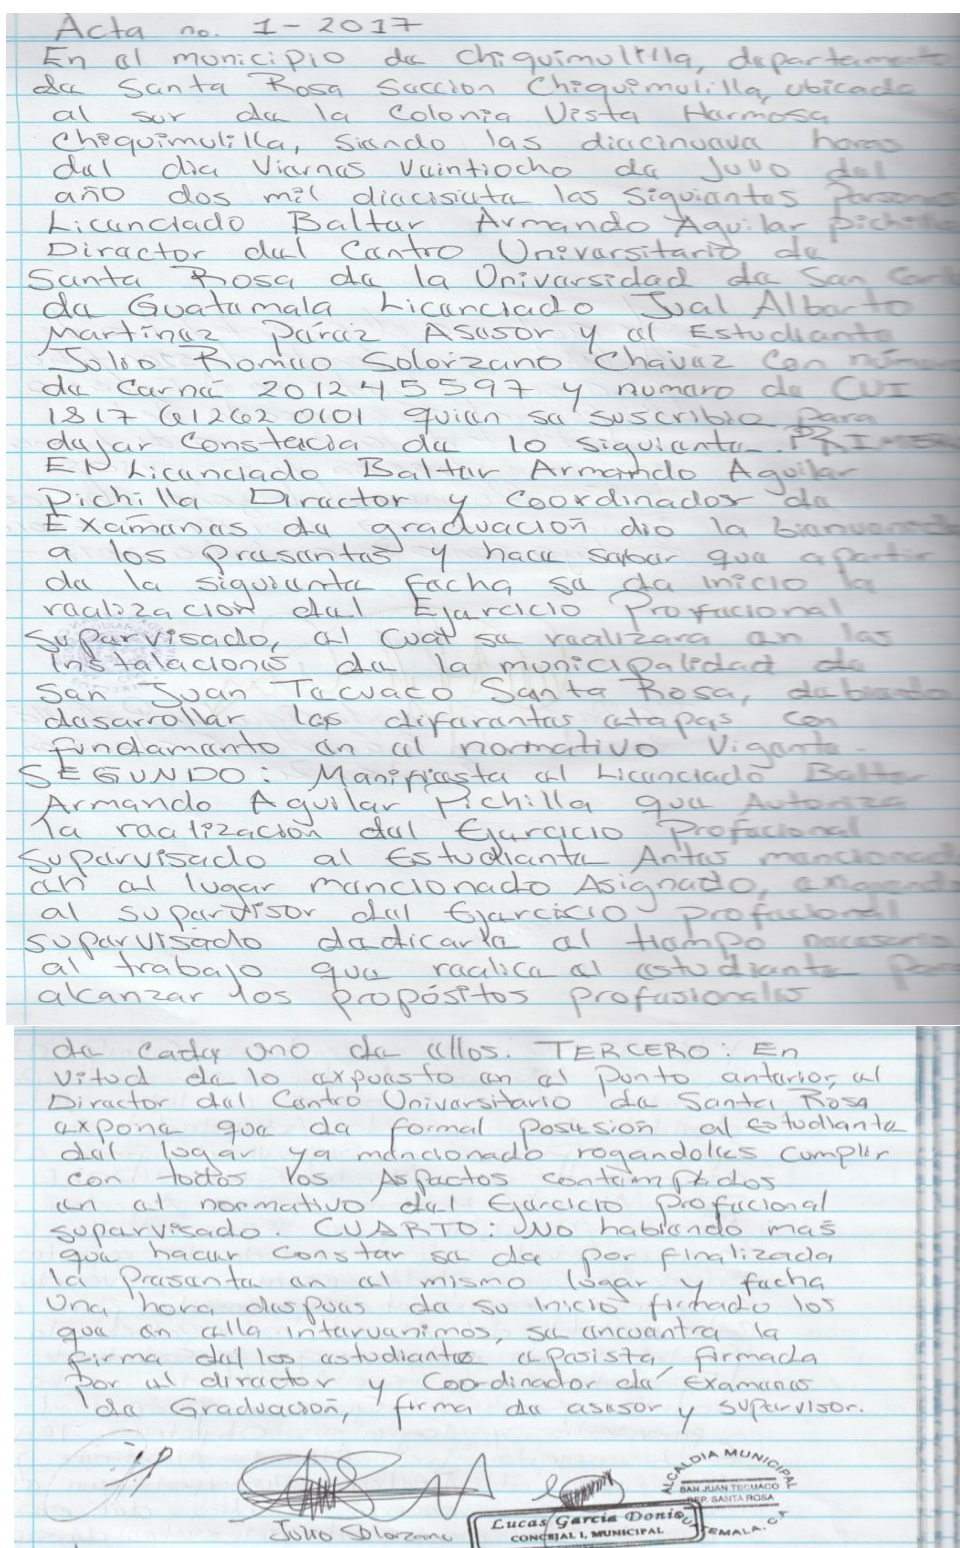 Acta no. 1-2017
En el municipio de Chiquimulilla, departamento
de Santa Rosa Seccion Chiquimulilla, ubicada
al sur de la Colonia Vista Hermosa
Chiquimulilla, siendo las diecinueve horas
del dia Viernes Veintiocho de Juvo del
año dos mil diecisiete las siguientes Personas
Licenciado Balter Armando Aguilar Pichilla
Director del Centro Universitario de
Santa Rosa de la Universidad de San Carl
de Guatemala Licenciado Joel Alberto
Martínez Peréz Asesor y el Estudiante
Julio Romeo Solorzano Chavez Con número
de Carné 201245597 y numero de CUI
1817 61262 0101 quien se suscribio para
dejar Constecia de lo siguiente. PRIMER
EN Licenciado Balter Armando Aguilar
Pichilla Director y Coordinador de
Examenes de graduación dio la bienvenida
a los Presentes y hace saber que apartir
de la siguiente fecha se da inicio la
realización del Ejercicio Profecional
Supervisado, el Cual se realizara en las
instalaciones de la municipalidad de
San Juan Tecuaco Santa Rosa, debiendo
desarrollar las diferentes etapas con
fundamento en el normativo Vigente.
SEGUNDO: Manifiesta el Licenciado Balter
Armando Aguilar Pichilla que Autoriza
la realización del Ejercicio Profecional
Supervisado al Estudiante Antes mencionad
en el lugar mencionado Asignado,
al supervisor del Ejercicio profecional
supervisado dedicarle el tiempo necesario
al trabajo que realice el estudiante Para
alcanzar los propósitos profesionales
de cada uno de ellos. TERCERO: En
Vitud de lo expuesto en el Punto anterior, el
Director del Centro Universitario de Santa Rosa
expone que da formal Posesión al estudiante
del lugar ya mencionado rogandoles Cumplir
con todos los Aspectos contemplados
en el normativo del Ejercicio Profecional
supervisado. CUARTO: No habiendo mas
que hacer Constar se da por finalizada
la Presente en el mismo lugar y fecha
Una hora despues de su inicio firmado los
que en ella intervenimos, se encuentra la
firma del los estudiantes epesista, firmada
Por el director y Coordinador de Examenes
de Graduación, firma de asesor y supervisor.
Julio Solorzano
Lucas Garcia Donis
CONCEJAL I, MUNICIPAL
ALCALDIA MUNICIPAL
SAN JUAN TECUACO
DEP. SANTA ROSA
GUATEMALA, C.A.